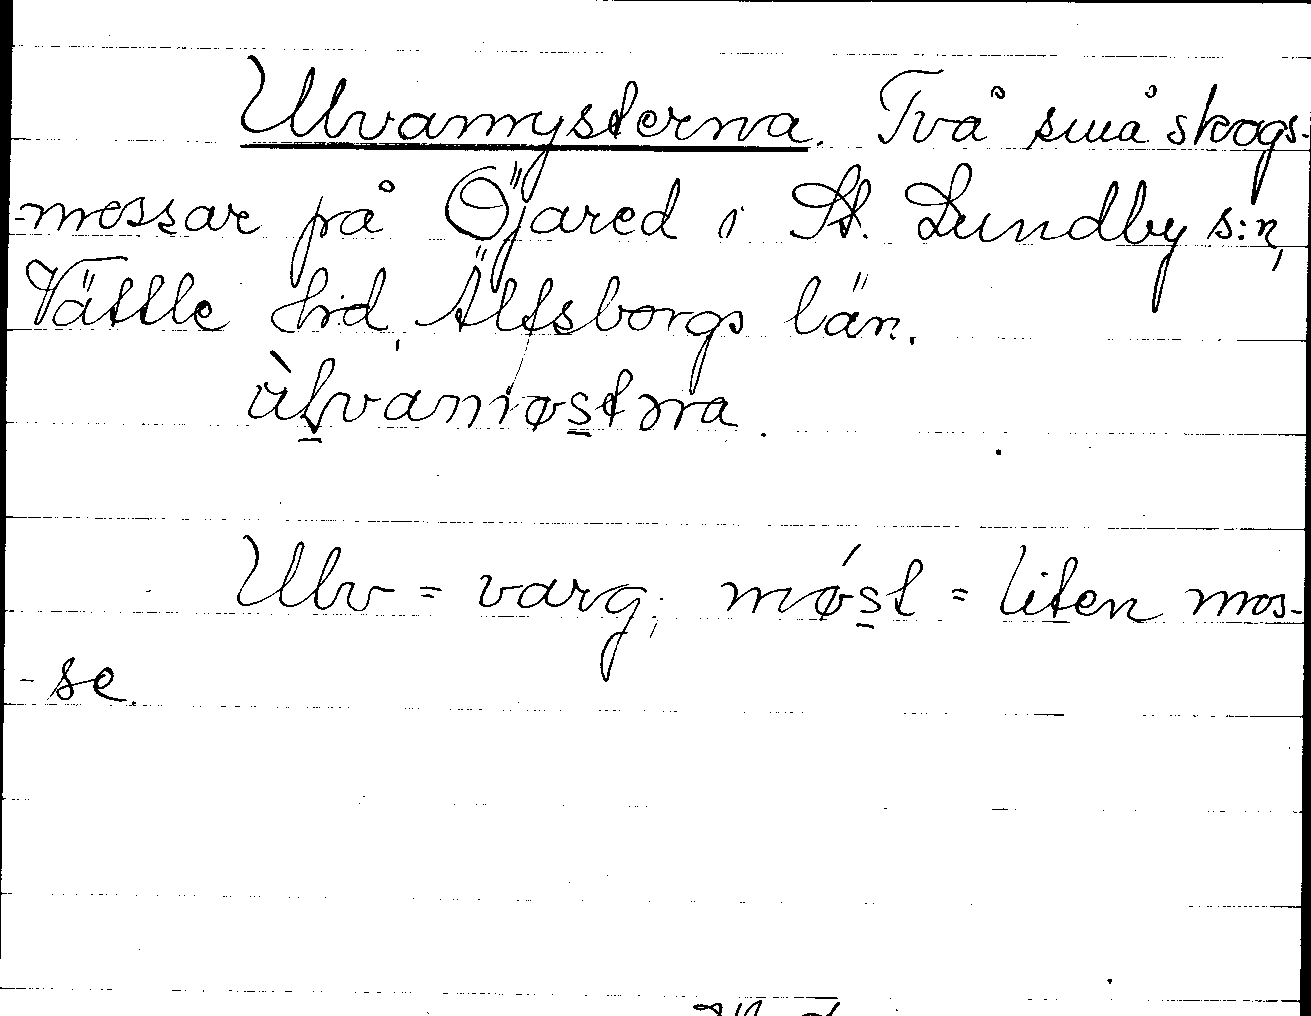 Ulvamysterna. Två små skogs-
-mossar på Öjared i St. Lundby s:n,
Vättle hd, Älfsborgs län.
ùlvamøstɔna.
Ulv = varg; møst = liten mos-
-se.